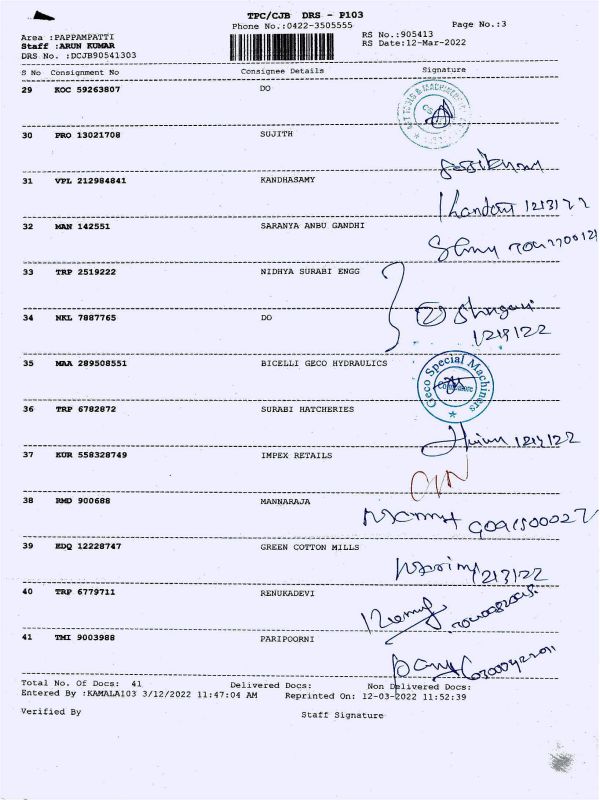 TPC/CJB DRS - P103
Phone No.:0422-3505555
Page No.:3
Area :PAPPAMPATTI
Staff :ARUN KUMAR
DRS No. :DCJB90541303
RS No.:905413
RS Date:12-Mar-2022
S No Consignment No Consignee Details Signature
29 KOC 59263807 DO
30 PRO 13021708 SUJITH
31 VPL 212984841 KANDHASAMY
12/3/22
32 MAN 142551 SARANYA ANBU GANDHI
33 TRP 2519222 NIDHYA SURABI ENGG
34 NKL 7887765 DO
12/3/22
35 MAA 289508551 BICELLI GECO HYDRAULICS
Geco Special Machines
Coimbatore
36 TRP 6782872 SURABI HATCHERIES
12/3/22
37 KUR 558328749 IMPEX RETAILS
38 RMD 900688 MANNARAJA
39 EDQ 12228747 GREEN COTTON MILLS
12/3/22
40 TRP 6779711 RENUKADEVI
41 TMI 9003988 PARIPOORNI
Total No. Of Docs: 41 Delivered Docs: Non Delivered Docs:
Entered By :KAMALA103 3/12/2022 11:47:04 AM Reprinted On: 12-03-2022 11:52:39
Verified By Staff Signature